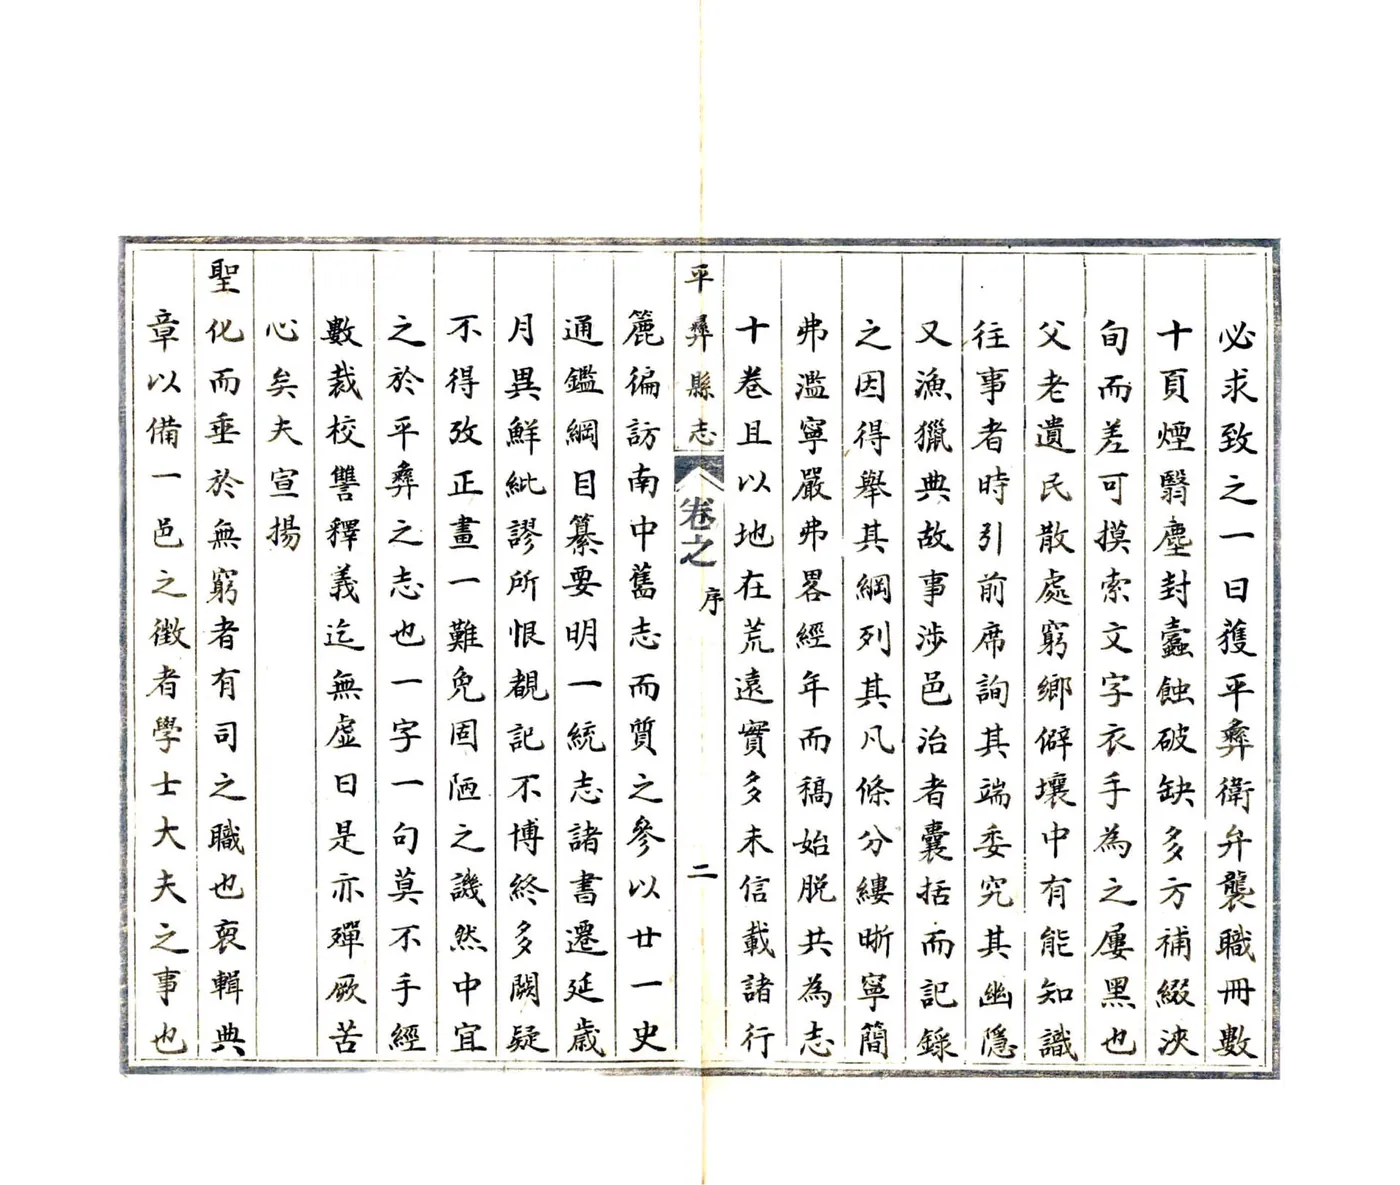 必求致之一日獲平彝衛弁襲職冊數
十頁煙翳塵封蠹蝕破缺多方補綴浹
旬而差可摸索文字衣手為之屢黑也
父老遺民散處窮鄉僻壤中有能知識
往事者時引前席詢其端委究其幽隱
又漁獵典故事涉邑治者囊括而記錄
之因得舉其綱列其凡條分縷晰寧簡
弗濫寧嚴弗畧經年而稿始脫共為志
十卷且以地在荒遠實多未信載諸行
平彝縣志
卷之
序
二
簏徧訪南中舊志而質之參以廿一史
通鑑綱目纂要明一統志諸書遷延歲
月異鮮紕謬所恨覩記不博終多闕疑
不得攷正畫一難免固陋之譏然中宜
之於平彝之志也一字一句莫不手經
數裁校讐釋義迄無虛日是亦殫厥苦
心矣夫宣揚
聖化而垂於無窮者有司之職也裒輯典
章以備一邑之徵者學士大夫之事也